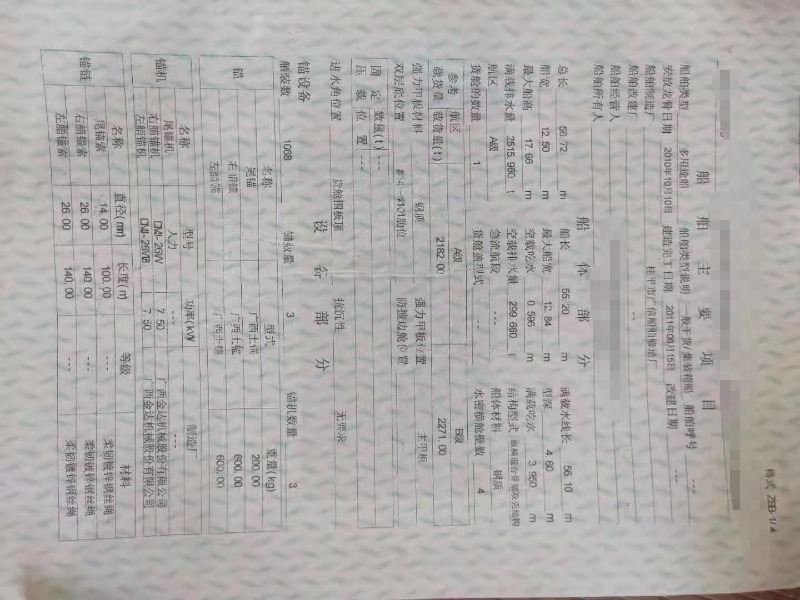 格式 ZBB-1/4
船舶主要项目
船舶类型 多用途船 船舶类型说明 一般干货/集装箱船 船舶呼号 ---
安放龙骨日期 2010年10月10日 建造完工日期 2011年06月15日 改建日期 ---
船舶制造厂 桂平市广信船舶修造厂
船舶改建厂 ---
船舶经营人
船舶所有人
船体部分
总长 56.72 m 船长 55.20 m 满载水线长 56.10 m
船宽 12.50 m 最大船宽 12.84 m 型深 4.60 m
最大船高 17.66 m 空载吃水 0.596 m 满载吃水 3.950 m
满载排水量 2515.980 t 空载排水量 299.660 t 结构型式
航区 A级 急流航段 --- 船体材料 钢质
货舱的数量 1 货舱盖型式 --- 水密横舱壁数 4
参考 航区 A级 B级
载货量 载货量(t) 2182.00 2271.00
强力甲板材料 钢质 强力甲板位置 主甲板
双层底位置 防撞边舱位置
固定 数量(t) ---
压载 位置 ---
进水角位置 货舱围板顶 抗沉性 无要求
设备部分
锚设备
舾装数 1068 锚数量 3 锚机数量 3
锚
名称 型式 重量(kg)
尾锚 广西土锚 200.00
右首锚 广西土锚 600.00
左首锚 广西土锚 600.00
锚机
名称 型号 功率(kW) 制造厂
尾锚机 人力 --- ---
右艏锚机 7.50 广西金达机械股份有限公司
左艏锚机 7.50 广西金达机械股份有限公司
锚链
名称 直径(mm) 长度(m) 等级 材料
尾锚索 14.00 100.00 --- 柔韧镀锌钢丝绳
右艏锚索 26.00 140.00 --- 柔韧镀锌钢丝绳
左艏锚索 26.00 140.00 --- 柔韧镀锌钢丝绳